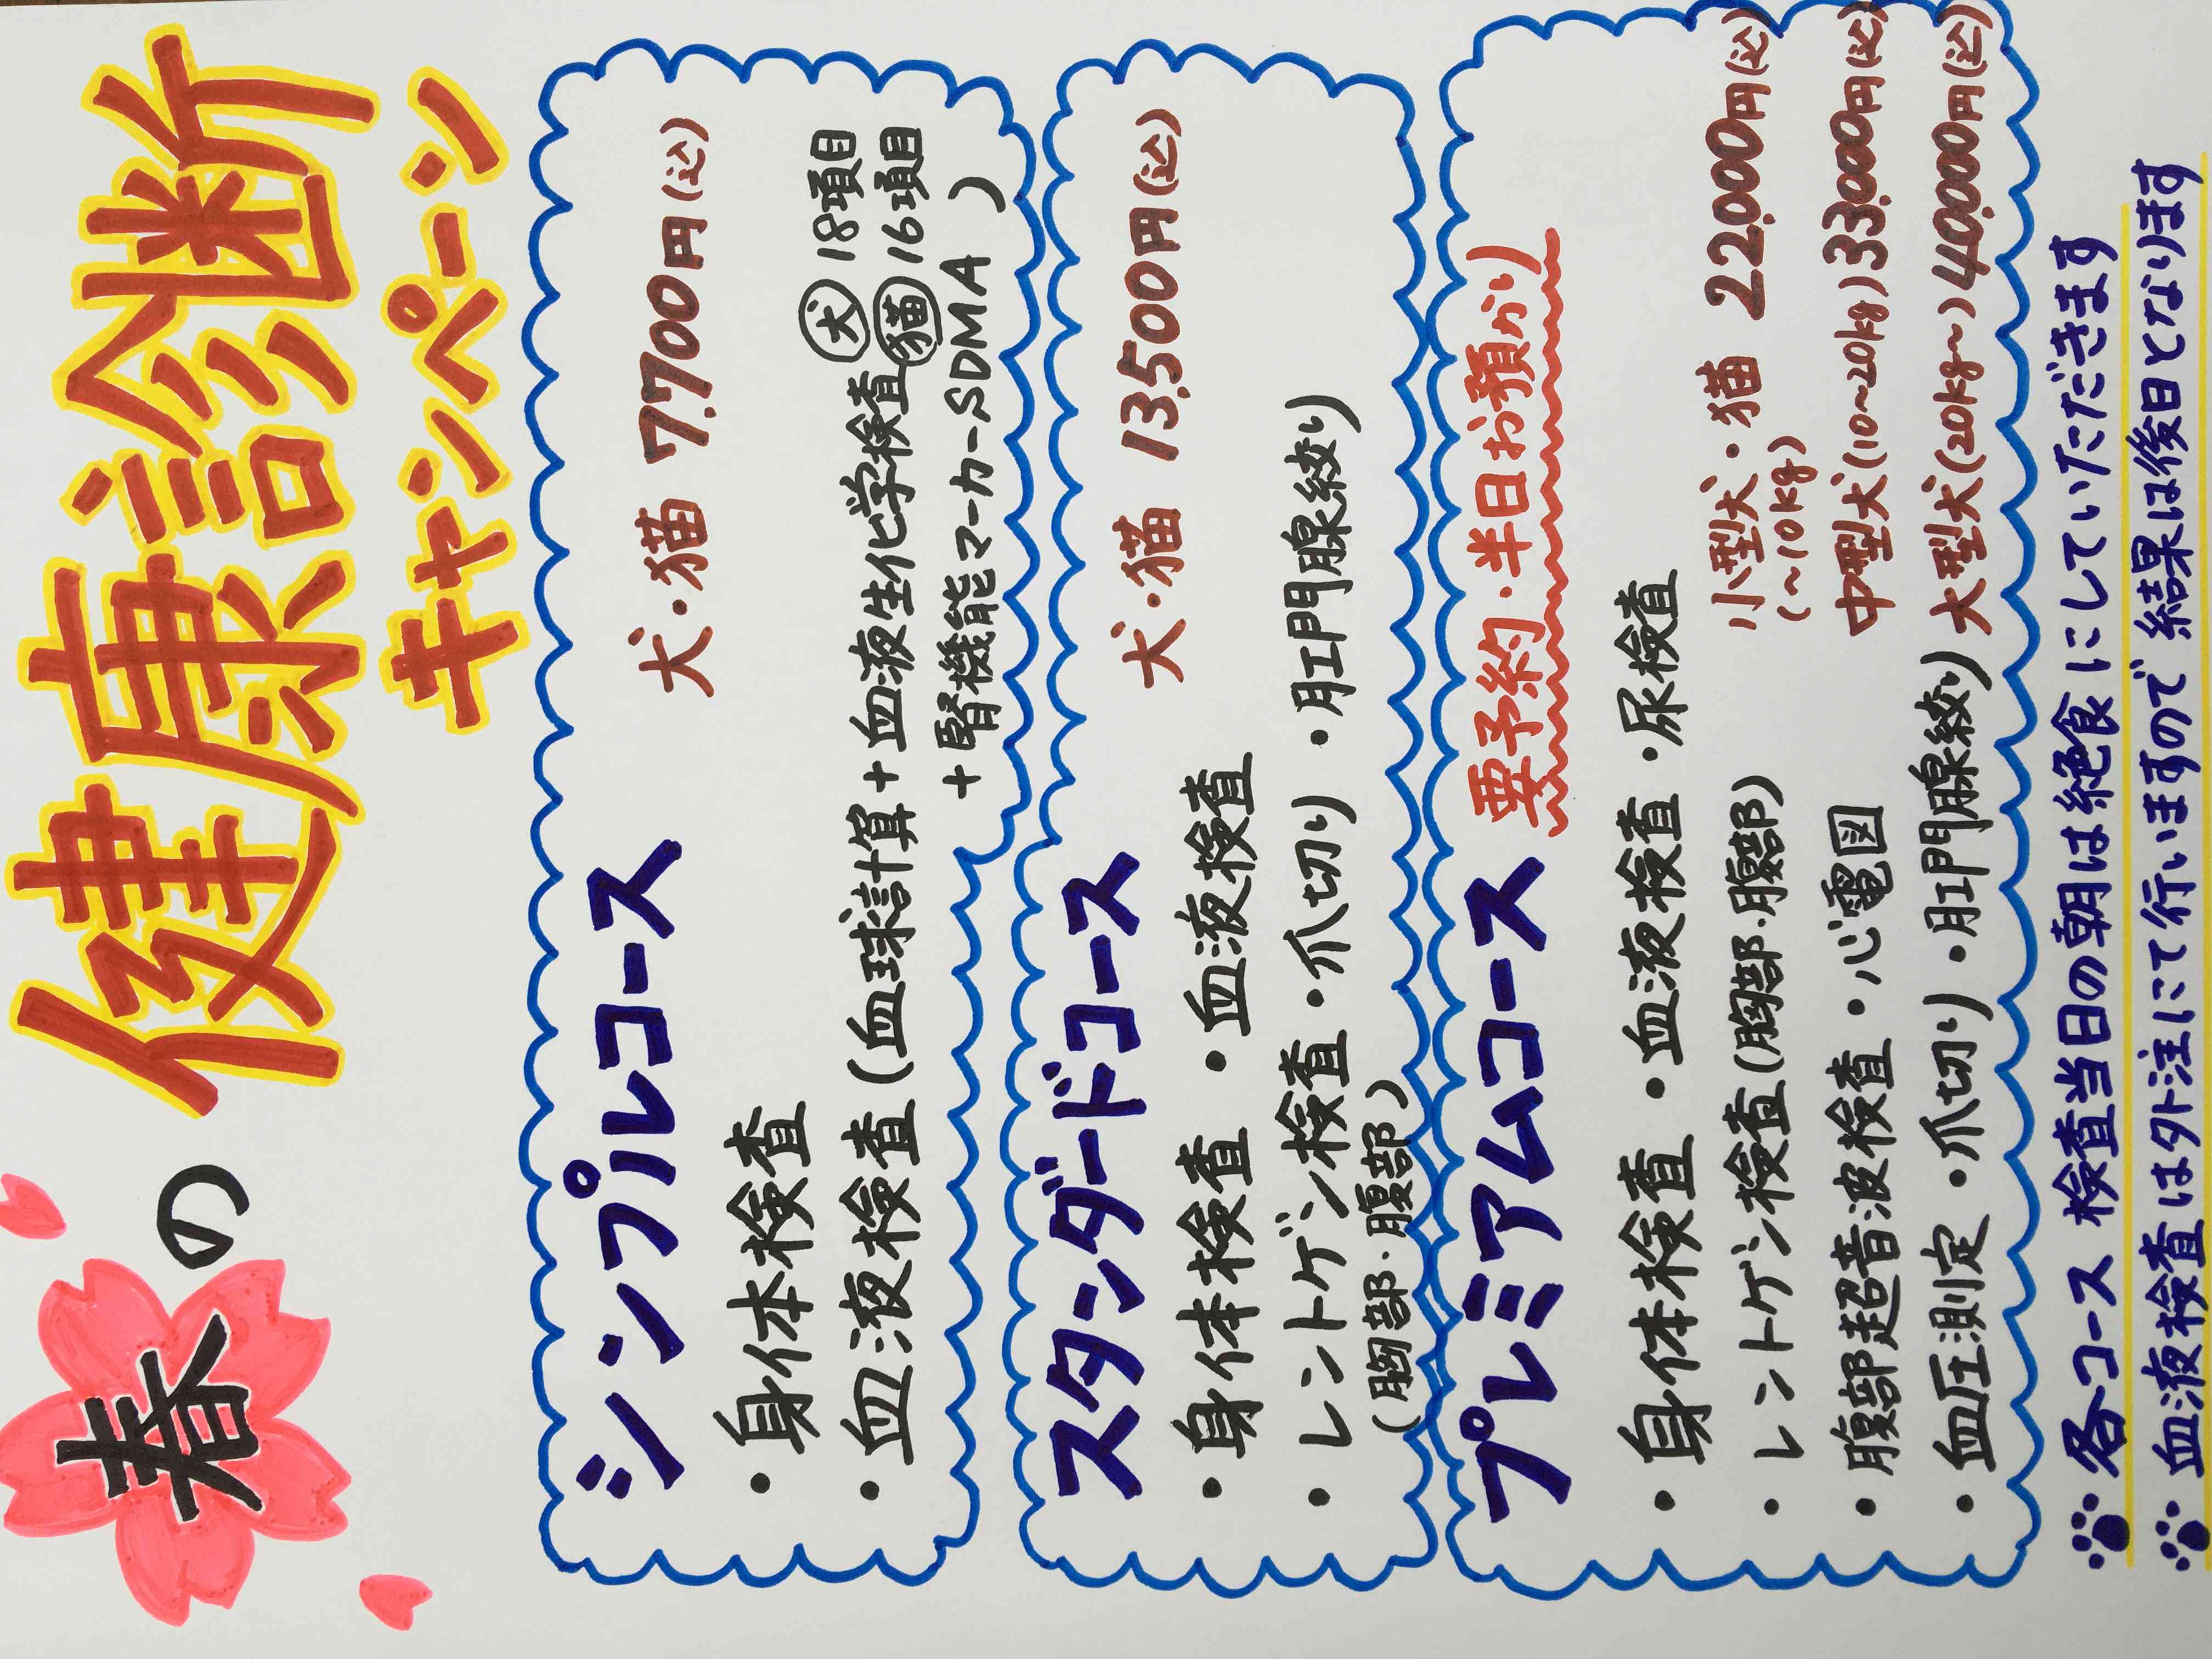 春の健康診断
キャンペーン
シンプルコース
犬・猫 7,700円(込)
・身体検査
・血液検査(血球計算+血液生化学検査 犬 18項目
猫 16項目
+腎機能マーカーSDMA)
スタンダードコース
犬・猫 13,500円(込)
・身体検査 ・血液検査
・レントゲン検査 ・爪切り ・肛門腺絞り
(胸部・腹部)
プレミアムコース 要予約・半日お預かり
・身体検査 ・血液検査 ・尿検査
・レントゲン検査(胸部・腹部) 小型犬・猫 22,000円(込)
(~10kg)
・腹部超音波検査 ・心電図 中型犬(10~20kg)33,000円(込)
・血圧測定 ・爪切り ・肛門腺絞り 大型犬(20kg~)40,000円(込)
各コース 検査当日の朝は絶食にしていただきます
血液検査は外注にて行いますので結果は後日となります